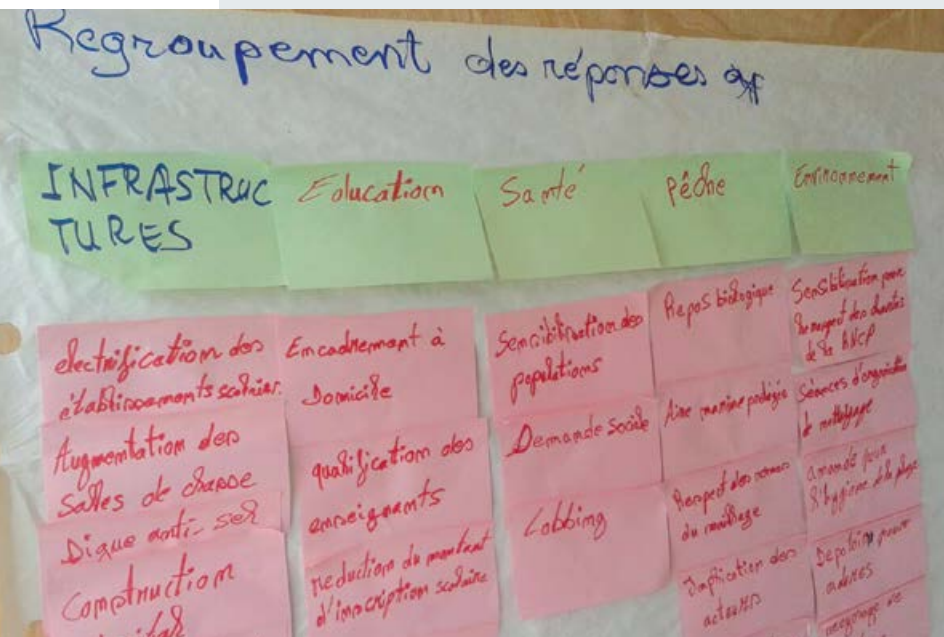 Regroupement des réponses
INFRASTRUC
TURES
Education
Santé
pêche
Environnement
electrification des
établissements scolaires
Augmentation des
salles de classe
Dique anti-sel
Construction
Encadrement à
Domicile
qualification des
enseignants
reduction du montant
d'inscription scolaire
Sensibilisation des
populations
Demande Sociale
Lobbing
Repos biologique
Aire marine protégée
Respect des normes
du maillage
Implication des
acteurs
Sensibilisation pour
le respect des
de la
Séances d'organisation
de nettoyage
pour
l'hygiène de la plage
Depotoirs pour